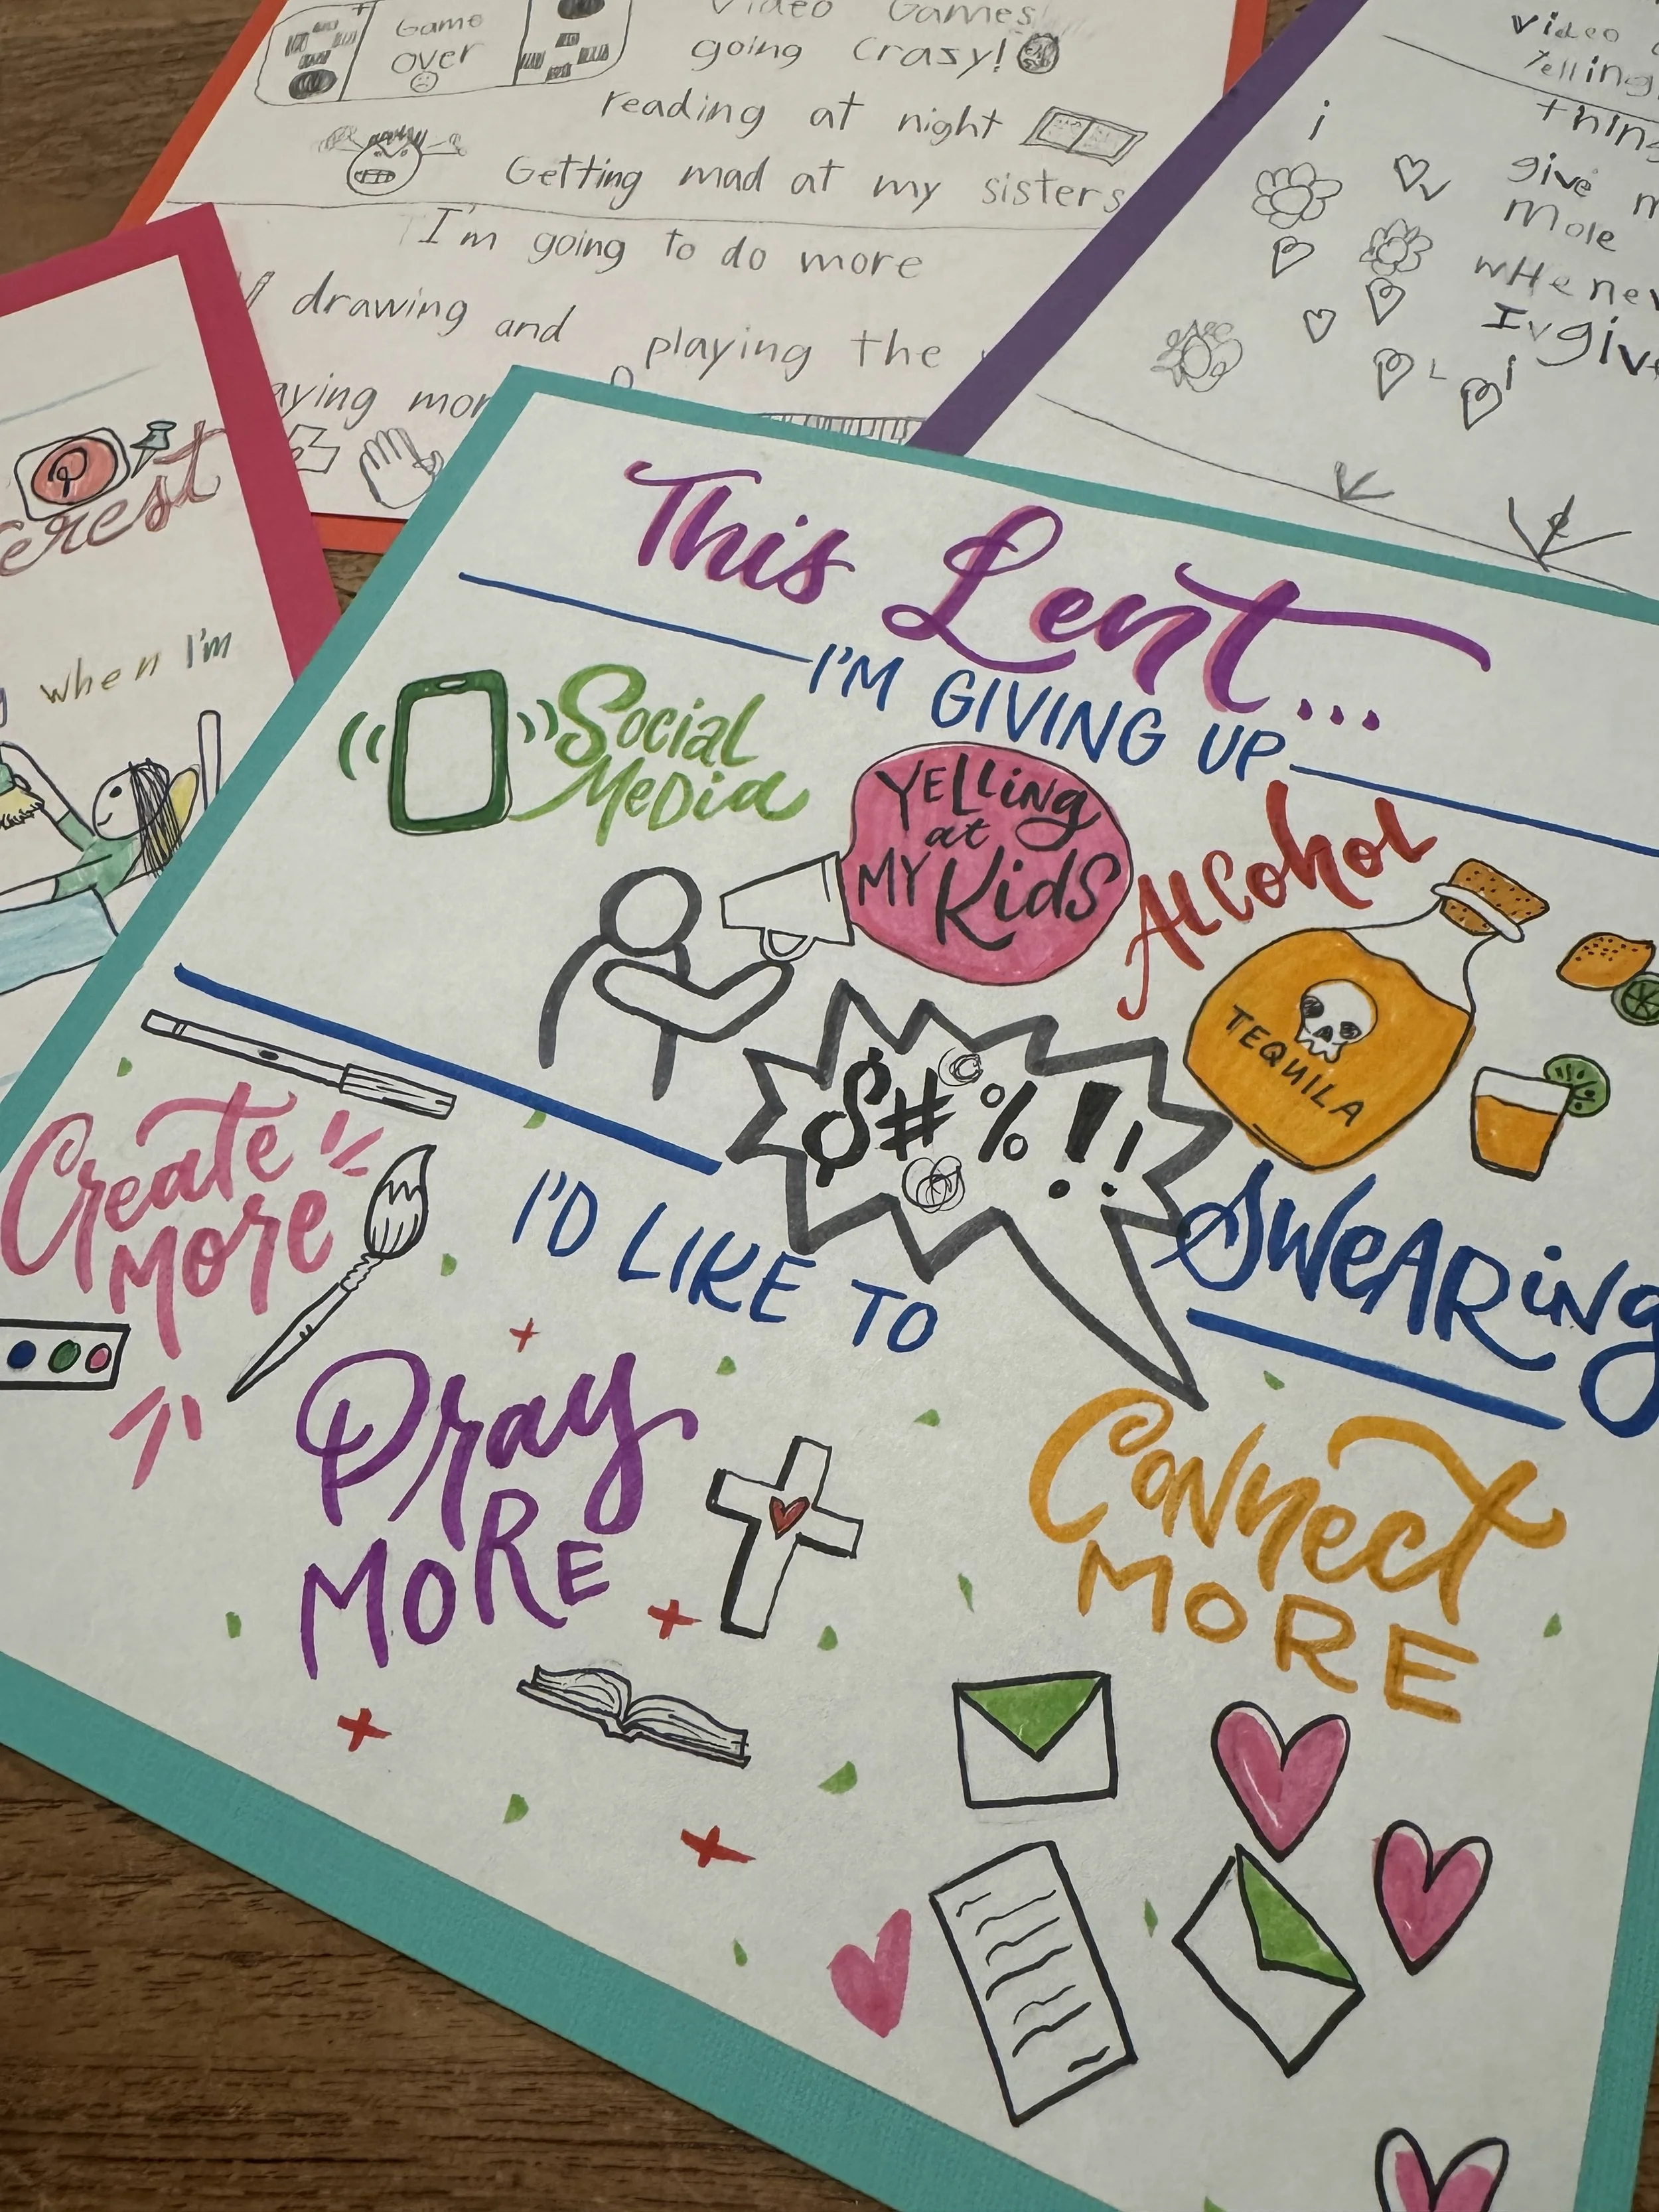 Game
over
Video Games
going crazy!
reading at night
Getting mad at my sisters
I'm going to do more
drawing and playing the
aying mor
Video
Yelling
thing
give m
more
wHenev
Iv give
P
erest
when I'm
This Lent...
I'M GIVING UP
Social
Media
YELLing
at
MY Kids
Alcohol
TEQUILA
$#©%!!
SWEARiNg
I'D LIKE TO
Create
More
Pray
MORE
Connect
MORE